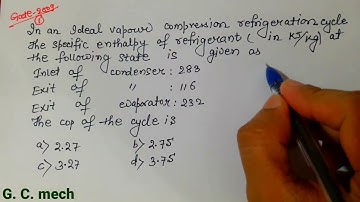 Gate-2003
①
In an Ideal vapour compression refrigeration cycle
the specific enthalpy of refrigerant (in KJ/kg) at
the following state is given as
Inlet of condenser : 283
Exit of " : 116
Exit of evaporator : 232
The cop of the cycle is
a> 2.27 b> 2.75
c> 3.27 d> 3.75
G. C. mech